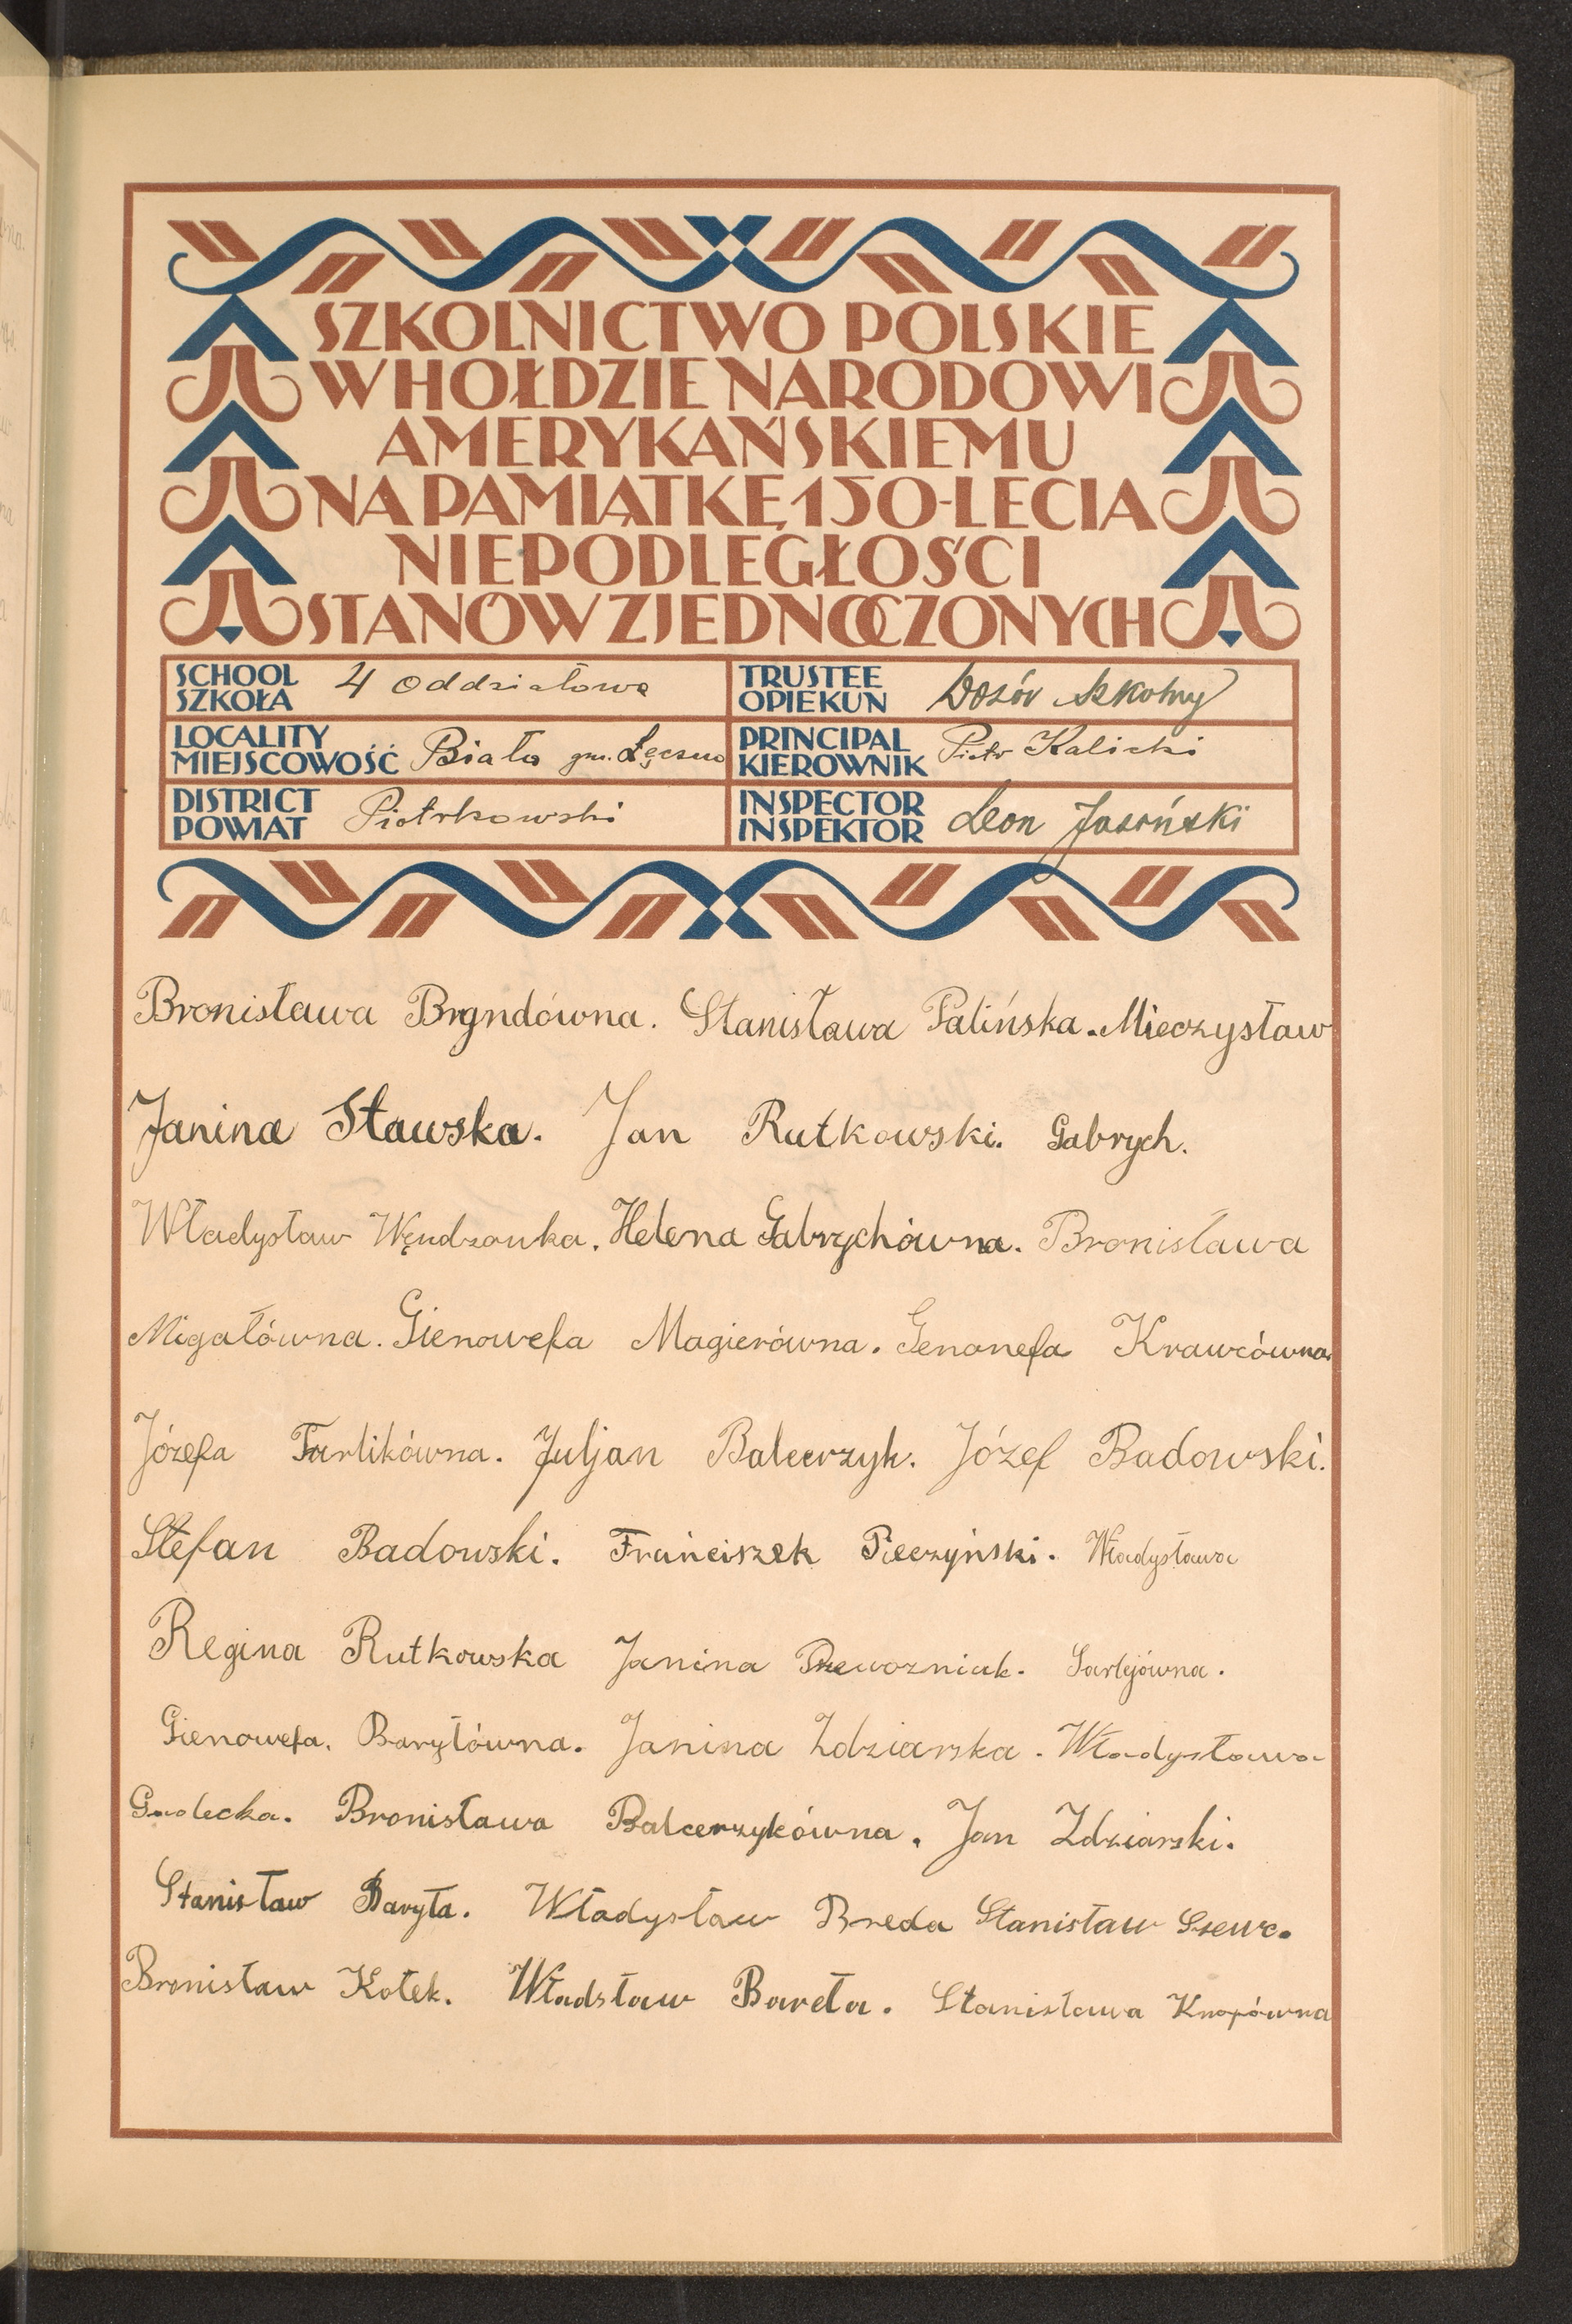 SZKOLNICTWO POLSKIE
W HOŁDZIE NARODOWI
AMERYKAŃSKIEMU
NA PAMIĄTKĘ 150-LECIA
NIEPODLEGŁOŚCI
STANÓW ZJEDNOCZONYCH
SCHOOL
SZKOŁA
4 oddziałowa
TRUSTEE
OPIEKUN
Dozór Szkolny
LOCALITY
MIEJSCOWOŚĆ
Biała gm. Łęczno
PRINCIPAL
KIEROWNIK
Piotr Kalicki
DISTRICT
POWIAT
Piotrkowski
INSPECTOR
INSPEKTOR
Leon Jasoński
Bronisława Bryndówna. Stanisława Palińska. Mieczysław
Janina Stawska. Jan Rutkowski. Gabrych.
Władysław Wędzonka. Helena Gabrychówna. Bronisława
Migałówna. Gienowefa Magierówna. Genonefa Krawcówna.
Józefa Turlikówna. Juljan Balcerzyk. Józef Badowski.
Stefan Badowski. Franciszek Pieczyński. Władysława
Regina Rutkowska Janina Przewozniak. Sarlejówna.
Gienowefa. Baryłówna. Janina Zdziarska. Władysława
Bronisława Balcerzykówna. Jan Zdziarski.
Stanisław Baryła. Władysław Breda Stanisław Szewc.
Bronisław Kołek. Władsław Bareła. Stanisława Knopówna